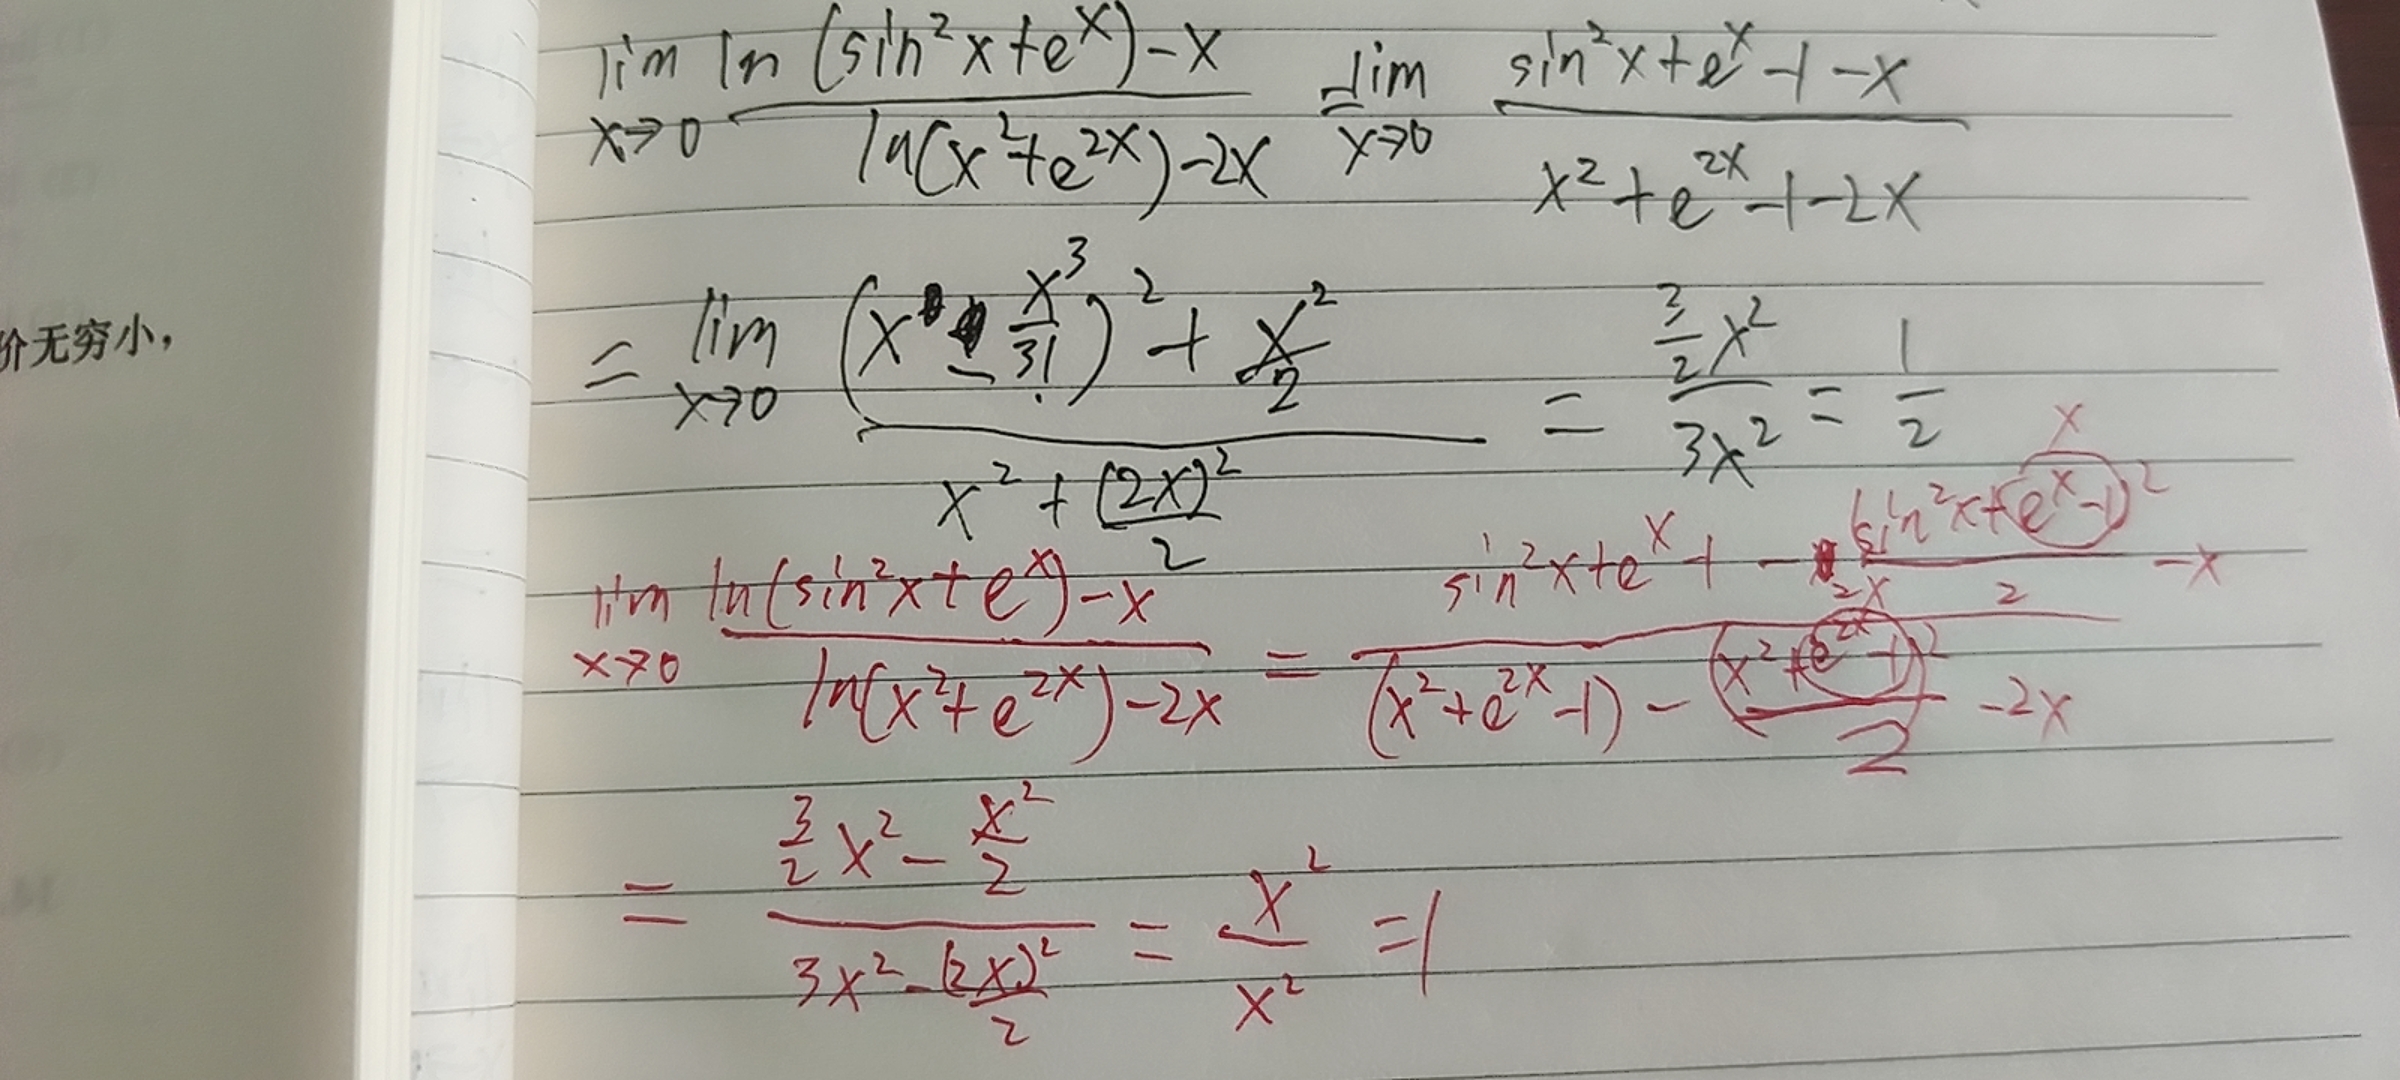 lim x→0 (ln(sin²x+e^x)-x)/(ln(x²+e^{2x})-2x) = lim x→0 (sin²x+e^x-1-x)/(x²+e^{2x}-1-2x)
价无穷小，
= lim x→0 ((x-x³/3!)²+x²/2)/(x²+(2x)²/2) = (3/2 x²)/(3x²) = 1/2
lim x→0 (ln(sin²x+e^x)-x)/(ln(x²+e^{2x})-2x) = (sin²x+e^x+ - (sin²x+(e^x-1))²/2 -x)/((x²+e^{2x}-1)-(x²+e^{2x}-1)²/2 -2x)
x
2x
= (3/2 x² - x²/2)/(3x²-(2x)²/2) = x²/x² = 1